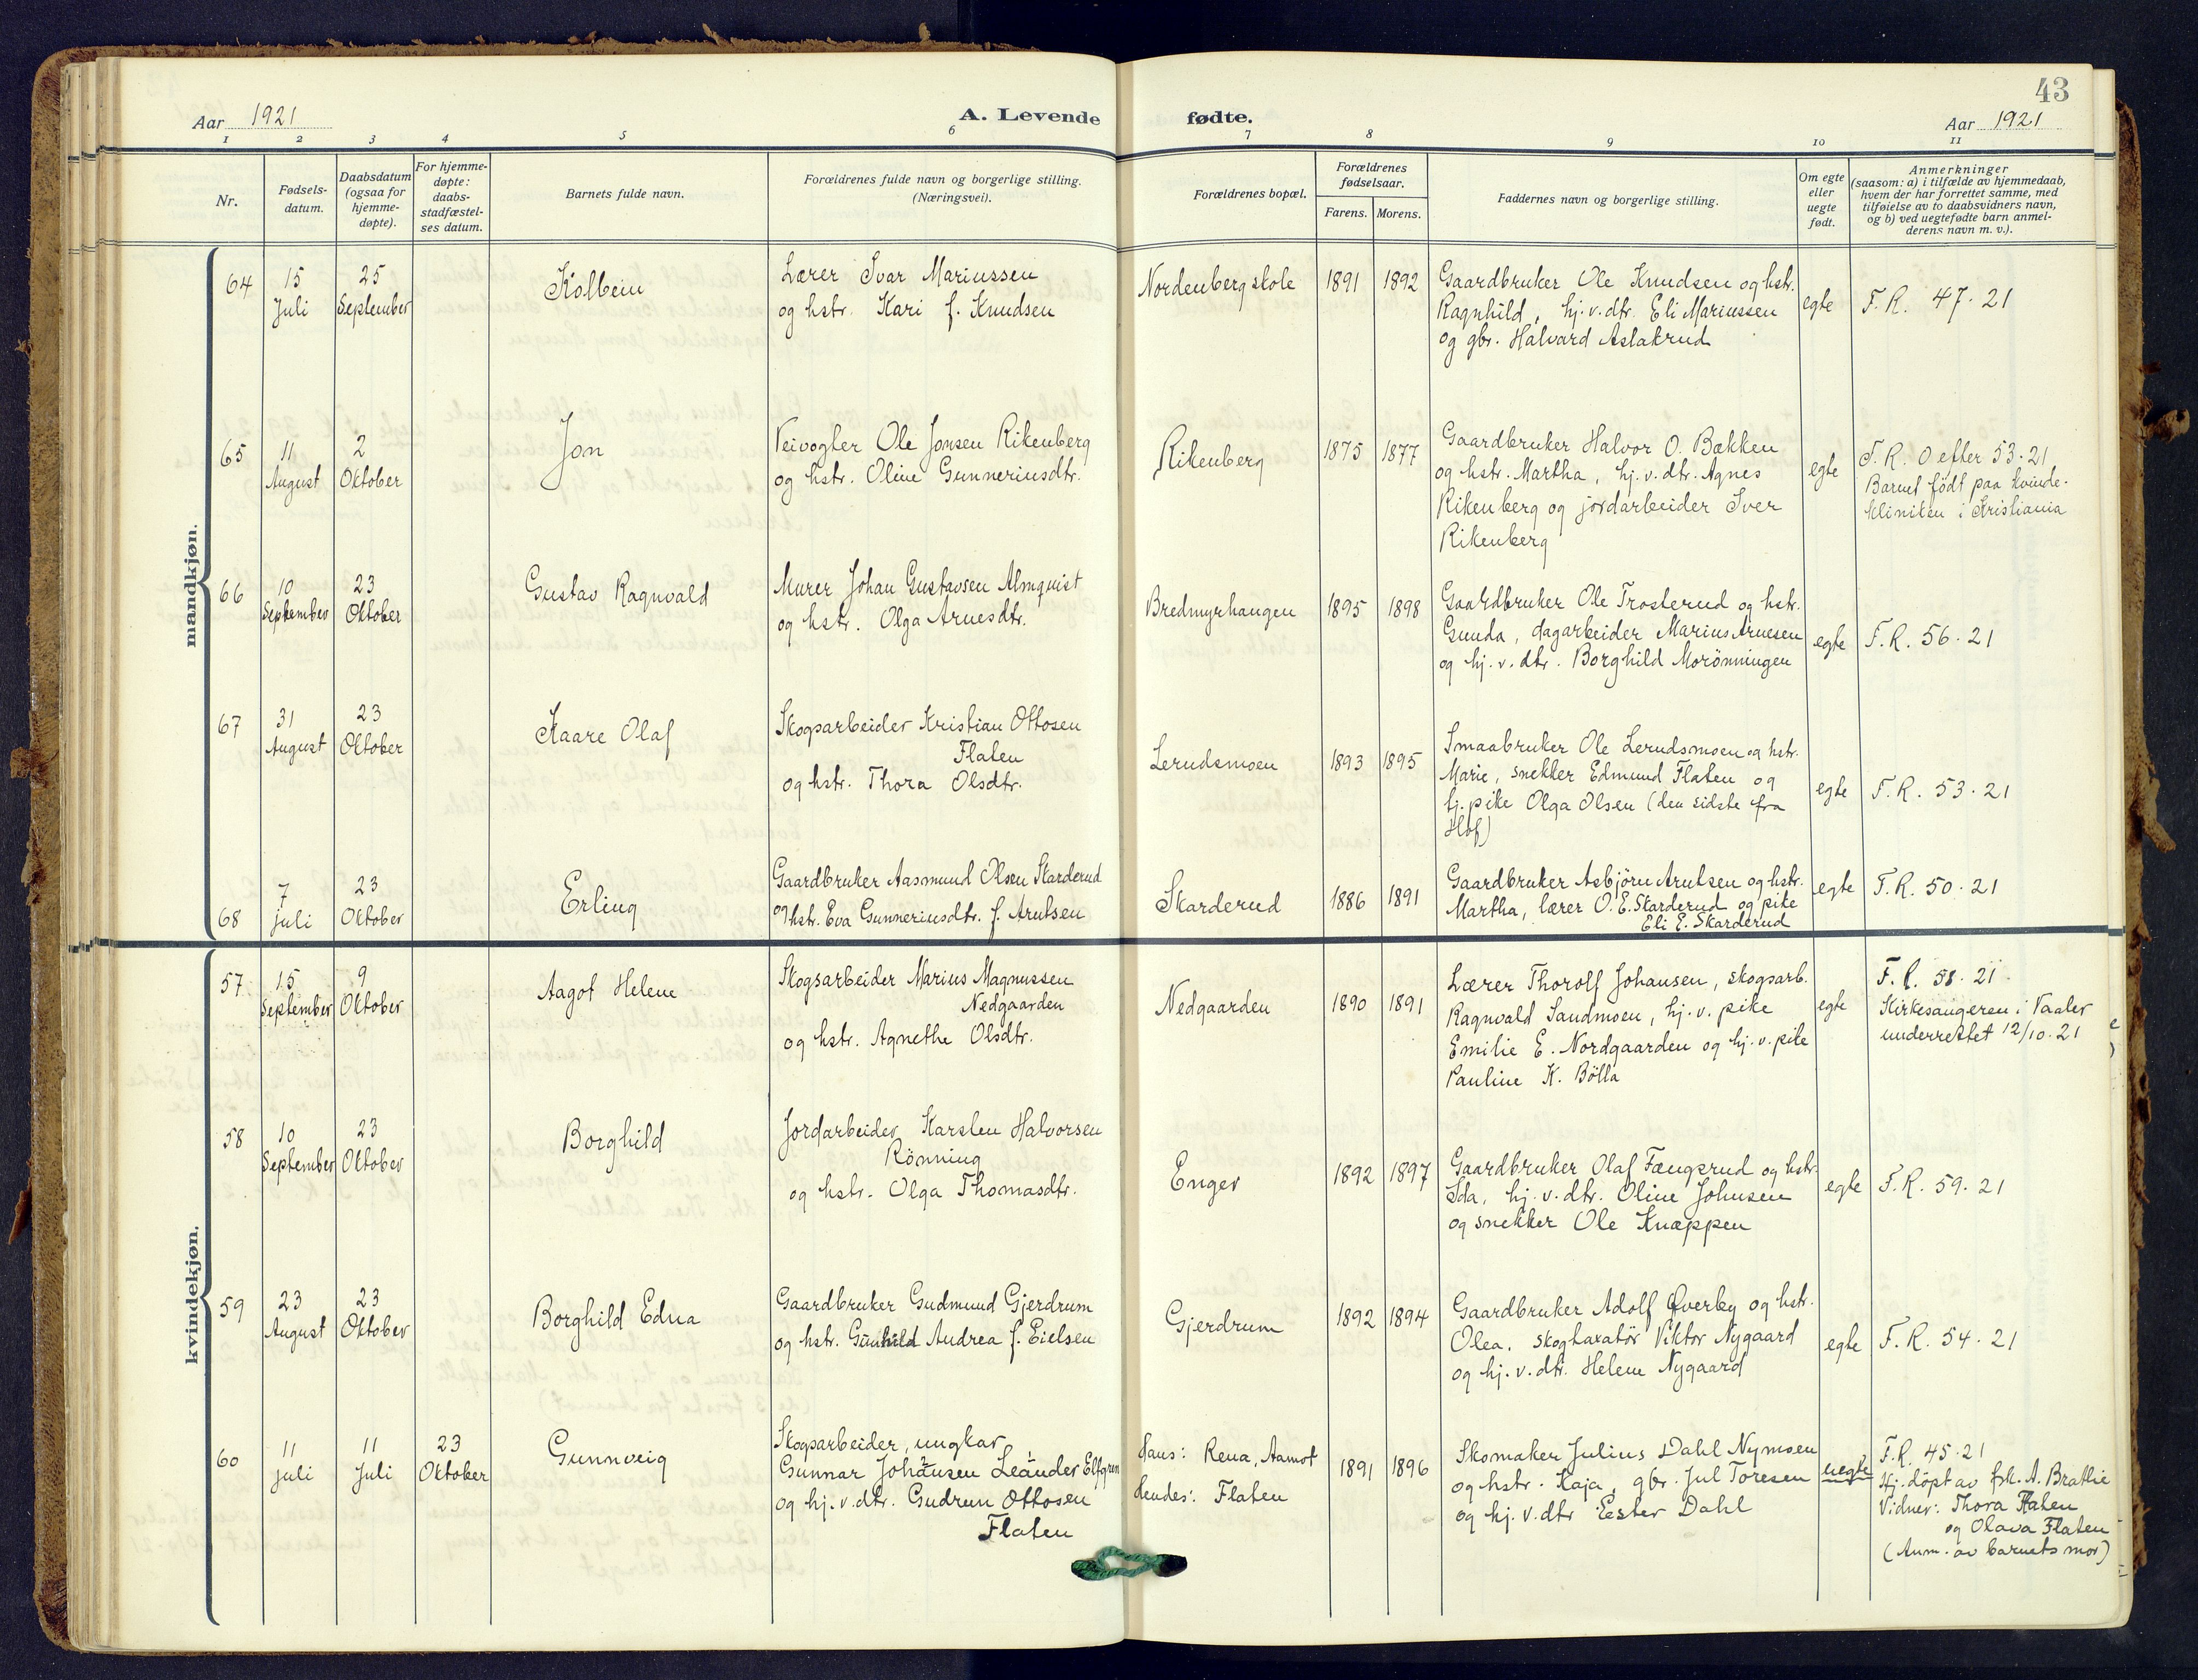 43
Aar 1921
A. Levende fødte.
Aar 1921
1 2 3 4 5 6 7 8 9 10 11
Nr.
Fødsels-
datum.
Daabsdatum
(ogsaa for
hjemme-
døpte).
For hjemme-
døpte:
daabs-
stadfæstel-
ses datum.
Barnets fulde navn.
Forældrenes fulde navn og borgerlige stilling.
(Næringsvei).
Forældrenes bopæl.
Forældrenes
fødselsaar.
Farens. Morens.
Faddernes navn og borgerlige stilling.
Om egte
eller
uegte
født.
Anmerkninger
(saasom: a) i tilfælde av hjemmedaab,
hvem der har forrettet samme, med
tilføielse av to daabsvidners navn,
og b) ved uegtefødte barn anmel-
derens navn m. v.).
mandkjøn.
64
15
Juli
25
September
Kolbein
Lærer Ivar Mariussen
og hstr. Kari f. Knudsen
Nordenberg skole
1891
1892
Gaardbruker Ole Knudsen og hstr.
Ragnhild, hj. v. dtr. Eli Mariussen
og gbr. Halvard Aslakrud
egte
F. R. 47-21
65
11
August
2
Oktober
Jon
Veivogter Ole Jonsen Rikenberg
og hstr. Oline Gunneriusdtr.
Rikenberg
1875
1877
Gaardbruker Halvor O. Bækken
og hstr. Martha, hj. v. dtr. Agnes
Rikenberg og jordarbeider Iver
Rikenberg
egte
F. R. 0 efter 53-21
Barnet født paa kvinde-
kliniken i Kristiania
66
10
September
23
Oktober
Gustav Ragnvald
Murer Johan Gustavsen Almquist
og hstr. Olga Arnesdtr.
Bredmyrhaugen
1895
1898
Gaardbruker Ole Trosterud og hstr.
Gunda, dagarbeider Marius Arnesen
og hj. v. dtr. Borghild Morønningen
egte
F. R. 56-21
67
31
August
23
Oktober
Kaare Olaf
Skogsarbeider Kristian Ottosen
Flaten
og hstr. Thora Olsdtr.
Lerudsmoen
1893
1895
Smaabruker Ole Lerudsmoen og hstr.
Marie, snekker Edmund Flaten og
hj. pike Olga Olsen (den sidste fra
Hof)
egte
F. R. 53-21
68
7
juli
23
Oktober
Erling
Gaardbruker Aasmund Olsen Skarderud
og hstr. Eva Gunneriusdtr. f. Arntsen
Skarderud
1886
1891
Gaardbruker Asbjørn Arntsen og hstr.
Martha, lærer O. E. Skarderud og pike
Eli E. Skarderud
egte
F. R. 50-21
kvindekjøn.
57
15
September
9
Oktober
Aagot Helene
Skogsarbeider Marius Magnussen
Nedgaarden
og hstr. Agnethe Olsdtr.
Nedgaarden
1890
1891
Lærer Thorolf Johansen, skogsarb.
Ragnvald Sandmoen, hj. v. pike
Emilie E. Nordgaarden og hj. v. pike
Pauline K. Bølla
egte
F. R. 58-21
Kirkesangeren i Vaaler
underrettet 12/10-21
58
10
September
23
Oktober
Borghild
Jordarbeider Karsten Halvorsen
Rønning
og hstr. Olga Thomasdtr.
Enger
1892
1897
Gaardbruker Olaf Fængsrud og hstr.
Ida, hj. v. dtr. Oline Johnsen
og snekker Ole Knappen
egte
F. R. 59-21
59
23
August
23
Oktober
Borghild Edna
Gaardbruker Gudmund Gjerdrum
og hstr. Gunhild Andrea f. Eielsen
Gjerdrum
1892
1894
Gaardbruker Adolf Øverby og hstr.
Olea, skogtaxatør Viktor Nygaard
og hj. v. dtr. Helene Nygaard
egte
F. R. 54-21
60
11
juli
11
Juli
23
Oktober
Gunnveig
Skogsarbeider, ungkar
Gunnar Johansen Leander Elfgren
og hj. v. dtr. Gudrun Ottosen
Flaten
Hans: Rena, Aamot
Hendes: Flaten
1891
1896
Skomaker Julius Dahl Nymoen
og hstr. Kaja, gbr. Jul Toresen
og hj. v. dtr Ester Dahl
uegte
F. R. 45-21
Hj. døpt av frk. A. Brathie
Vidner: Thora Flaten
og Olava Flaten
(Anm. av barnets mor)